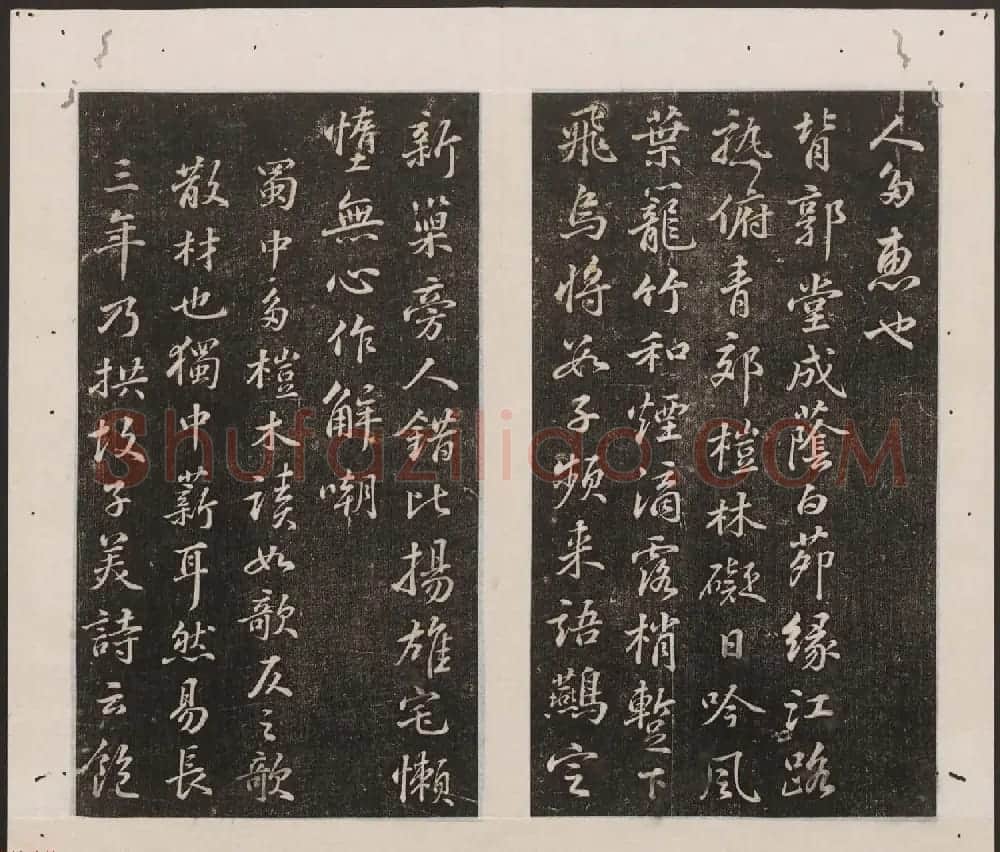 人多惠也
背郭堂成蔭白茆緣江路
熟俯青郊榿林礙日吟風
葉籠竹和煙滴露梢暫下
飛烏將數子頻來語鷰定
新巢旁人錯比揚雄宅懶
惰無心作解嘲
蜀中多榿木讀如欹仄之欹
散材也獨中薪耳然易長
三年乃拱故子美詩云飽
Shufaziliao.COM